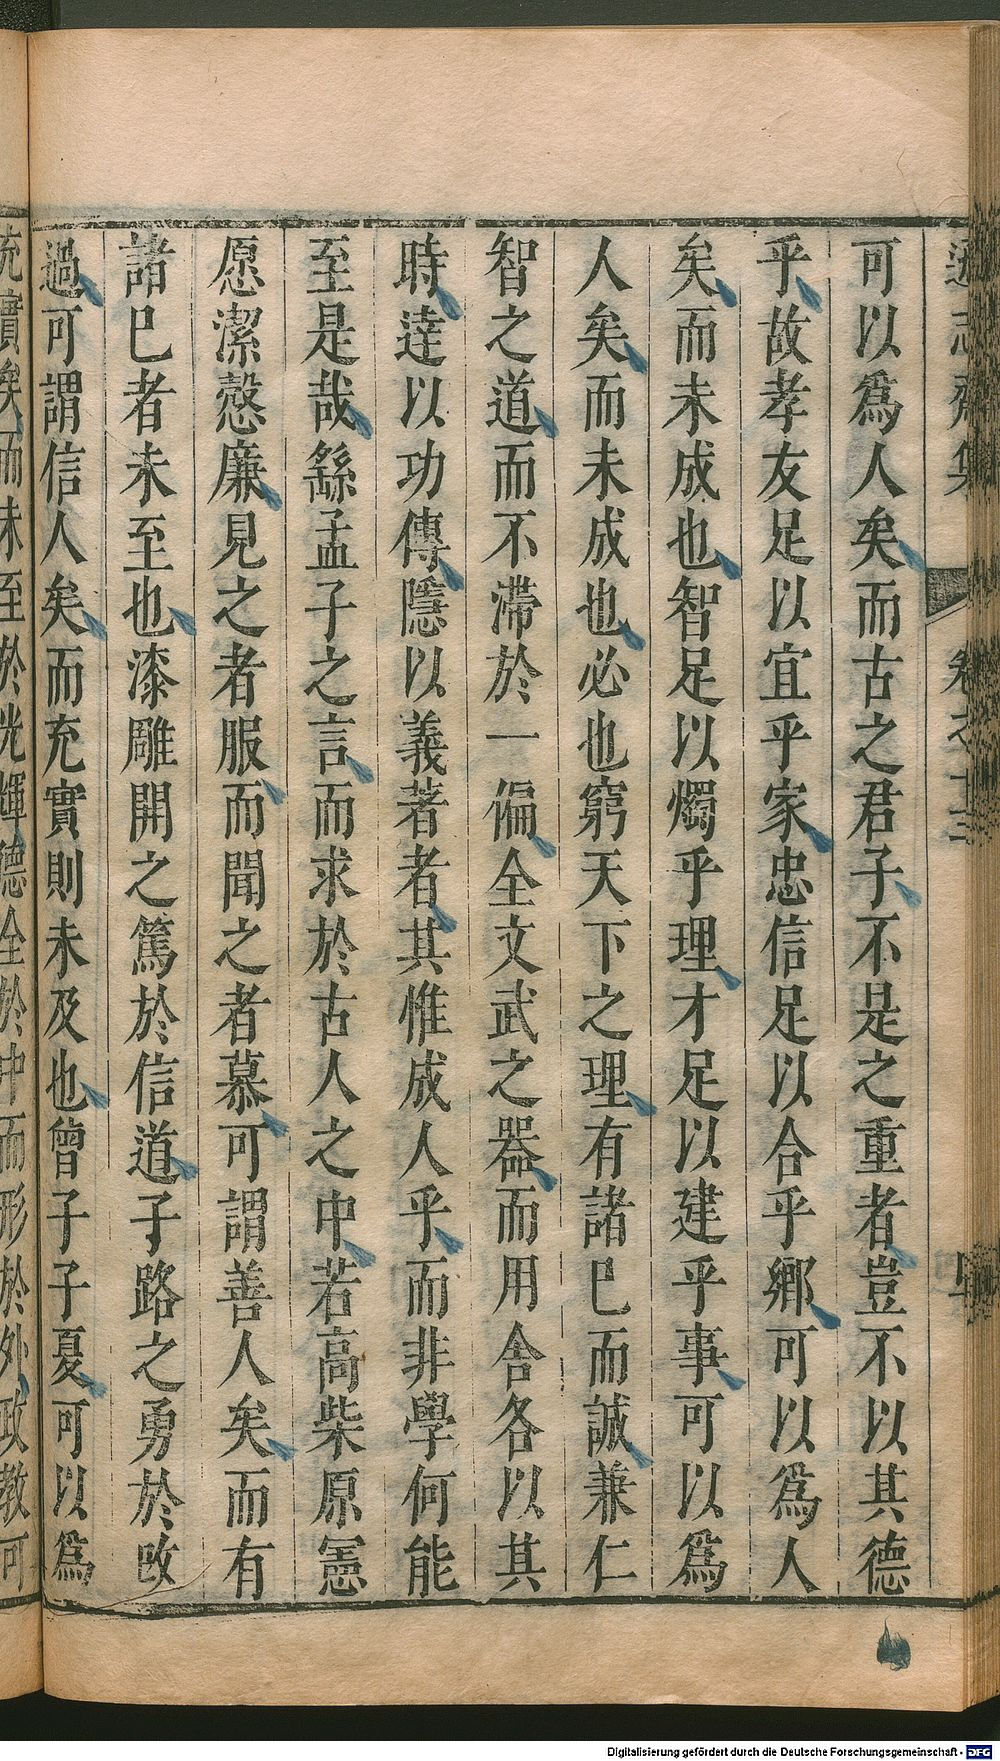 遜志齋集 卷之十三
可以爲人矣而古之君子不是之重者豈不以其德
乎故孝友足以宜乎家忠信足以合乎鄉可以爲人
矣而未成也智足以燭乎理才足以建乎事可以爲
人矣而未成也必也窮天下之理有諸已而誠兼仁
智之道而不滯於一偏全文武之器而用舍各以其
時達以功傳隱以義著者其惟成人乎而非學何能
至是哉繇孟子之言而求於古人之中若高柴原憲
愿潔慤廉見之者服而聞之者慕可謂善人矣而有
諸已者未至也漆雕開之篤於信道子路之勇於改
過可謂信人矣而充實則未及也曾子子夏可以爲
充實矣而未至於光輝德全於中而形於外政教可
Digitalisierung gefördert durch die Deutsche Forschungsgemeinschaft - DFG